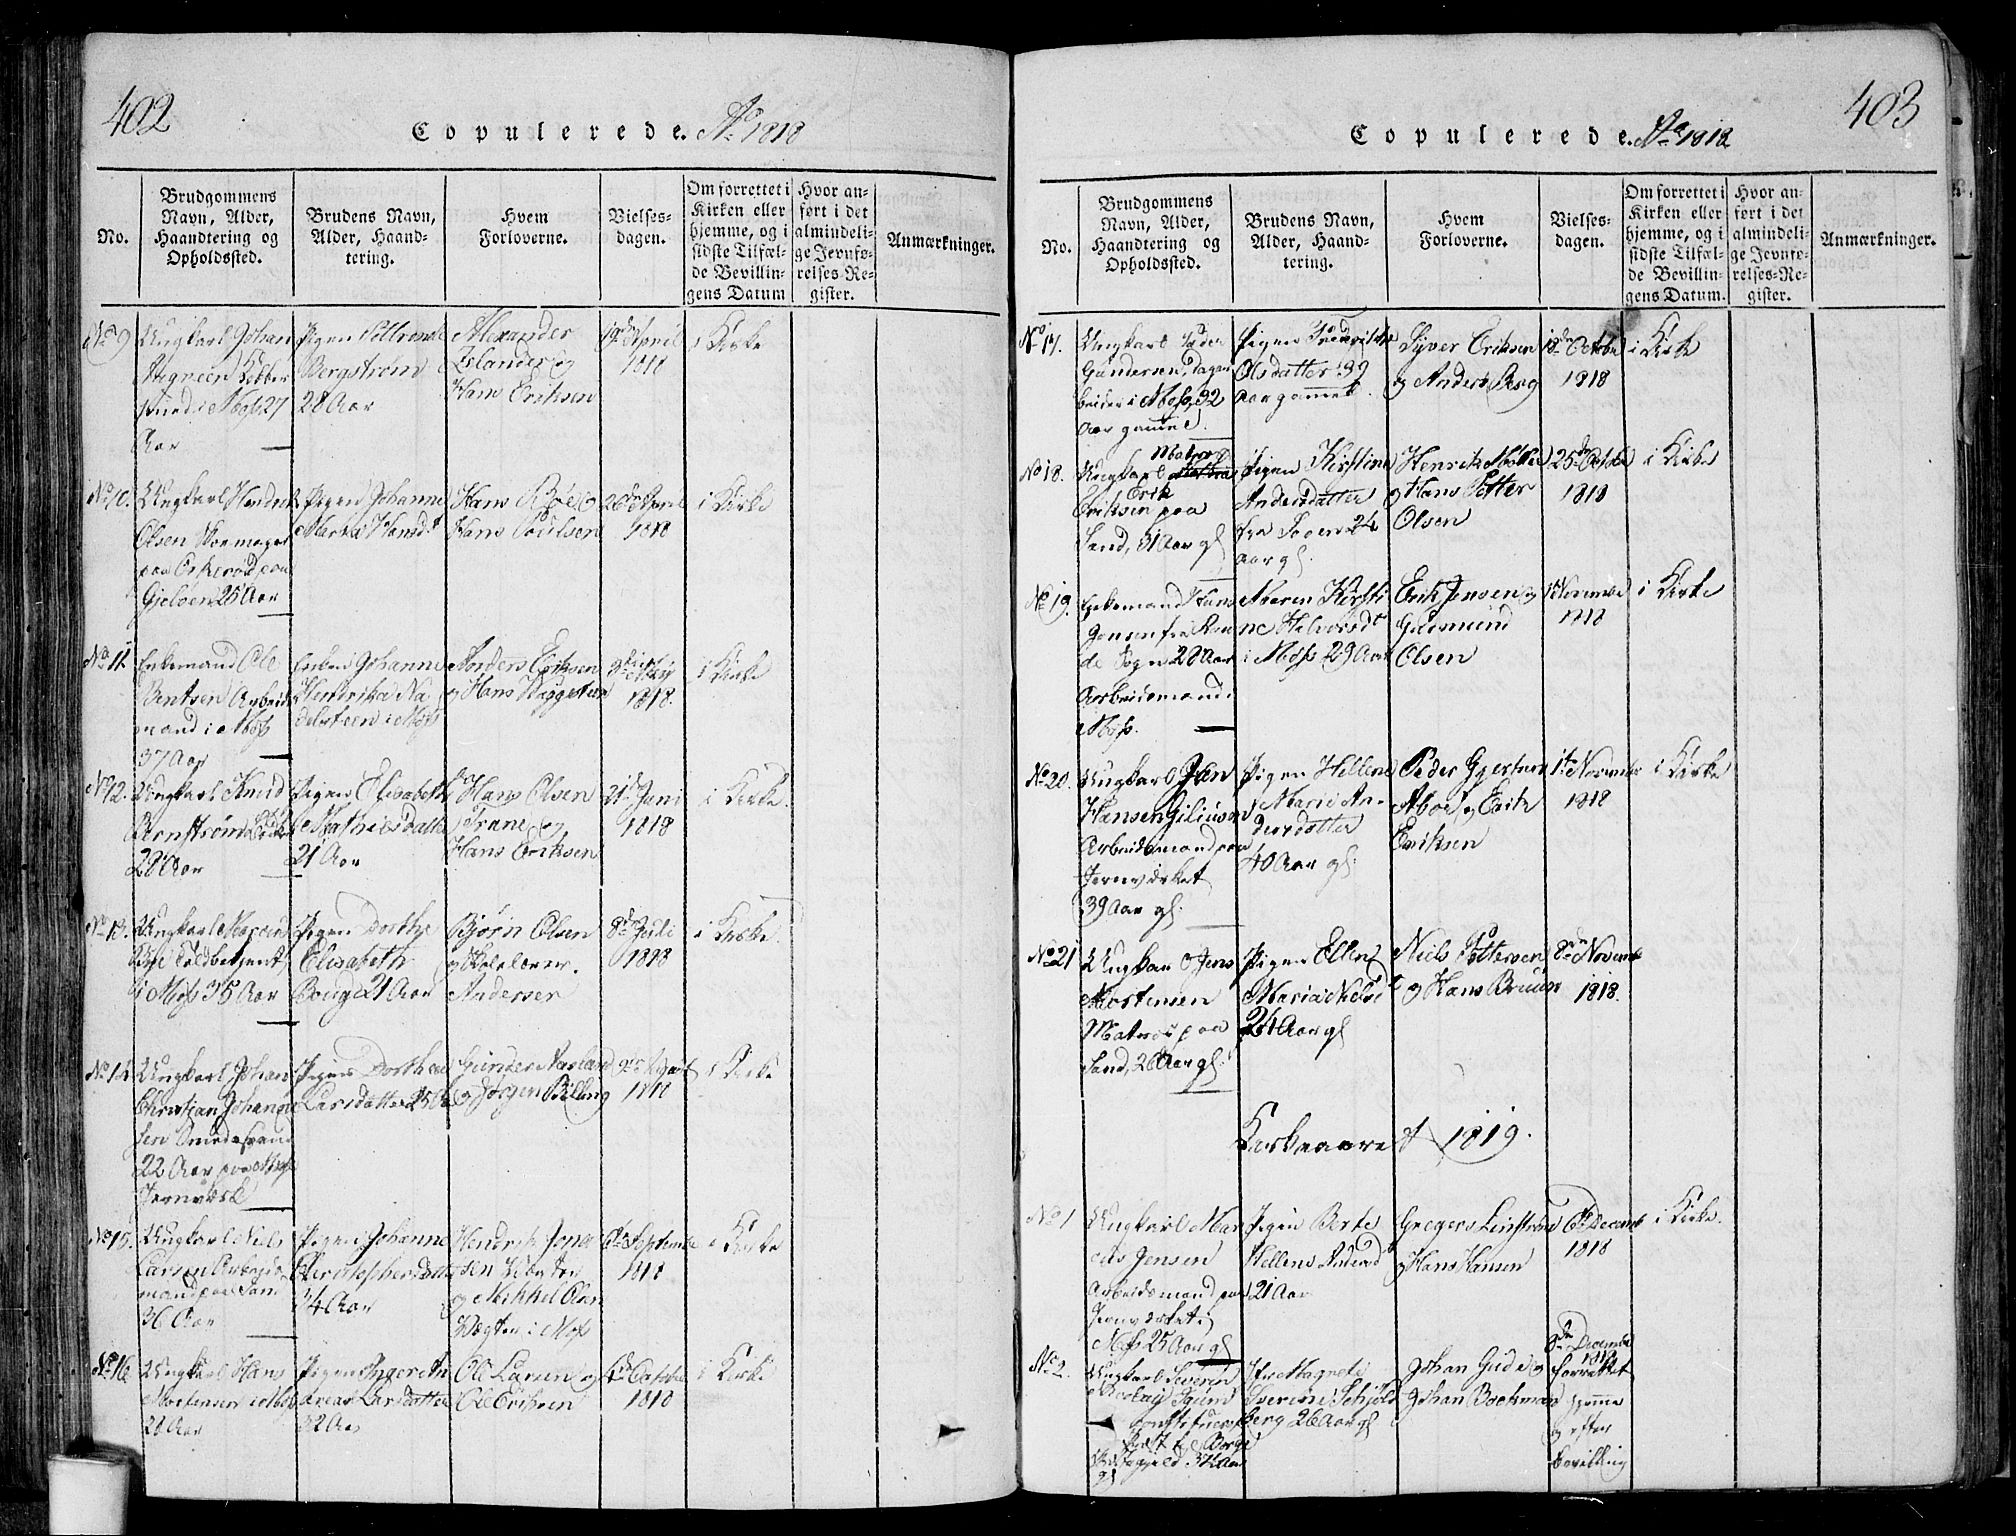 402
Copulerede. Ao 1818
No.
Brudgommens
Navn, Alder,
Haandtering og
Opholdssted.
Brudens Navn,
Alder, Haand-
tering.
Hvem
Forloverne.
Vielses-
dagen.
Om forrettet i
Kirken eller
hjemme, og i
sidste Tilfæl-
de Bevillin-
gens Datum
Hvor an-
ført i det
almindeli-
ge Jevnfø-
relses-Re-
gister.
Anmærkninger.
No 9
Ungkarl Johan
i Moss 27
Aar
Pigen
Bergström
28 Aar
Alexander
Islander og
Hans Eriksen
19de April
1818
i Kirke
No 10.
Ungkarl Hendrik
Olsen
paa
Gjeløen 25 Aar
Pigen Johanne
Maria Hansdt
Hans Bøe og
Hans Poulsen
26de April
1818
i Kirke
No 11.
Enkemand Ole
Bentsen Arbeids
mand i Moss
37 Aar
Enken Johanne
Hendrika Na
delsteen i Moss
Anders Eriksen
og Hans
3die Maij
1818.
i Kirke
No 12.
Ungkarl Knud
28 Aar
Pigen Elisabeth
Mathiesdatter
21 Aar
Hans Olsen
Trane og
Hans Eriksen
21de Juni
1818
i Kirke.
No 13.
Ungkarl
Bye Toldbetjent
i Moss 35 Aar
Pigen Dorthe
Elisabeth
Bouge 21 Aar
Bjørn Olsen
og Skolelærer
Andersen
8de Juli
1818
i Kirke.
No 14
Ungkarl Johan
Christian Johanne
sen Smedesvend
22 Aar paa Moss
Jernværk
Pigen Dorthea
Larsdatter 25 Aar
Gunder Aasland
og Jørgen Billing
1818
i Kirke
No 15.
Ungkarl Niels
Larsen Arbeids
mand paa San
36 Aar
Pigen Johanne
Christophersdatter
34 Aar
Hendrik Jona
sen Vægter
og Mikkel Olsen
Vægter i Moss
6te Septembr
1818
i Kirke
No 16
Ungkarl Hans
Mortensen i Moss
28 Aar
Pigen Inger An
drea Larsdatter
32 Aar
Ole Larsen og
Ole Eriksen
4de October
1818
i Kirke
403
Copulerede. Ao 1818
No.
Brudgommens
Navn, Alder,
Haandtering og
Opholdssted.
Brudens Navn,
Alder, Haand-
tering.
Hvem
Forloverne.
Vielses-
dagen.
Om forrettet i
Kirken eller
hjemme, og i
sidste Tilfæl-
de Bevillin-
gens Datum.
Hvor an-
ført i det
almindeli-
ge Jevnfø-
relses-Re-
gister.
Anmærkninger.
No 17.
Ungkarl Peder
Gundersen, Dagar
beider i Moss, 32
Aar gammel.
Pigen Frederikke
Olsdatter 39
Aar gammel.
Syver Eriksen
og Anders Berg
18de Octobr
1818
i Kirke
No 18.
Ungkarl Matros
Erik
Eriksen paa
Sand, 31 Aar gl
Pigen Kirstine
Andersdatter
24
aar gl.
Henrik Møller
og Hans Petter
Olsen
25de Octobr
1818
i Kirke
No 19.
Enkemand Hans
Jensen fra Raa
de Sogn 28 Aar
Arbeidsmand i
Moss.
Maren Kirsti
ne Halvorsdt
i Moss 29 Aar
Erik Jensen og
Gudmund
Olsen
1te Novembr
1818
i Kirke
No 20.
Ungkarl Jen
Hansen
Arbeidsmand paa
Jernværket
39 Aar gl.
Pigen Hellene
Marie An-
dersdatter
40 Aar gl.
Peder Gjertsen
Aboe og Erik
Eriksen
1te Novembr
1818
i Kirke
No 21
Ungkarl Jens
Mortensen
Matros paa
Sand, 26 Aar gl.
Pigen Ellen
Maria Nielsd
24 Aar gl
Niels Pettersen
og Hans Bruun
8de Novembr
1818.
Kirkeaaret 1819.
No 1
Ungkarl Mar
cus Jensen
Arbeidsmand paa
Jernværket i
Moss 25 Aar gl
Pigen Berte
Hellene
21 Aar
Gregers Linström
og Hans Hansen
6te Decemb
1818
i Kirke.
No 2.
Ungkarl Severin
constitueret
Præst til Borge
Præstegjeld 32 Aar
gl
Magnete
Severine Schiøld
berg 26 Aar gl
Johan Gude og
Johan Bockman
8de Decembr
1818
forrettet
hjemme
efter
Bevilling